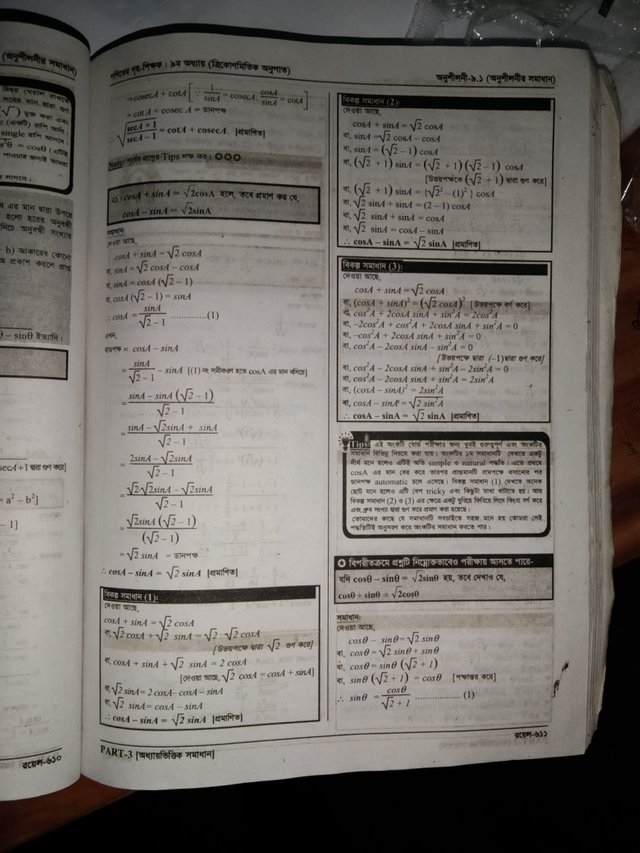 (অনুশীলনীর সমাধান)
গণিতের গৃহ-শিক্ষক : ৯ম অধ্যায় (ত্রিকোণমিতিক অনুপাত)
অনুশীলনী-৯.১ (অনুশীলনীর সমাধান)
= cosecA + cotA [∵ 1/sinA = cosecA, cosA/sinA = cotA]
= cot A + cosec A = ডানপক্ষ
∴ √((secA + 1)/(secA − 1)) = cotA + cosecA. [প্রমাণিত]
Note: পূর্বের প্রশ্নের Tips লক্ষ কর। ✪✪✪
২১। cosA + sinA = √2cosA হলে, তবে প্রমাণ কর যে,
cosA − sinA = √2sinA
সমাধান:
দেওয়া আছে,
cosA + sinA = √2 cosA
বা, sinA = √2 cosA − cosA
বা, sinA = cosA (√2 − 1)
বা, cosA (√2 − 1) = sinA
∴ cosA = sinA/(√2 − 1) ..............(1)
এখন,
বামপক্ষ = cosA − sinA
= sinA/(√2 − 1) − sinA [(1) নং সমীকরণ হতে cosA এর মান বসিয়ে]
= (sinA − sinA (√2 − 1))/(√2 − 1)
= (sinA − √2sinA + sinA)/(√2 − 1)
= (2sinA − √2sinA)/(√2 − 1)
= (√2·√2sinA − √2sinA)/(√2 − 1)
= √2sinA (√2 − 1)/(√2 − 1)
= √2 sinA = ডানপক্ষ
∴ cosA − sinA = √2 sinA [প্রমাণিত]
বিকল্প সমাধান (1):
দেওয়া আছে,
cosA + sinA = √2 cosA
বা, √2 cosA + √2 sinA = √2 · √2 cosA
[উভয়পক্ষে দ্বারা √2 গুণ করে]
বা, cosA + sinA + √2 sinA = 2 cosA
[দেওয়া আছে, √2 cosA = cosA + sinA]
বা, √2 sinA = 2 cosA − cosA − sinA
বা, √2 sinA = cosA − sinA
∴ cosA − sinA = √2 sinA [প্রমাণিত]
PART-3 [অধ্যায়ভিত্তিক সমাধান]
বিকল্প সমাধান (2):
দেওয়া আছে,
cosA + sinA = √2 cosA
বা, sinA = √2 cosA − cosA
বা, sinA = (√2 − 1) cosA
বা, (√2 + 1) sinA = (√2 + 1) (√2 − 1) cosA
[উভয়পক্ষকে (√2 + 1) দ্বারা গুণ করে]
বা, (√2 + 1) sinA = {√2² − (1)²} cosA
বা, √2 sinA + sinA = (2 − 1) cosA
বা, √2 sinA + sinA = cosA
বা, √2 sinA = cosA − sinA
∴ cosA − sinA = √2 sinA [প্রমাণিত]
বিকল্প সমাধান (3):
দেওয়া আছে,
cosA + sinA = √2 cosA
বা, (cosA + sinA)² = (√2 cosA)² [উভয়পক্ষে বর্গ করে]
বা, cos²A + 2cosA sinA + sin²A = 2cos²A
বা, −2cos²A + cos²A + 2cosA sinA + sin²A = 0
বা, −cos²A + 2cosA sinA + sin²A = 0
বা, cos²A − 2cosA sinA − sin²A = 0
[উভয়পক্ষে দ্বারা (−1) দ্বারা গুণ করে]
বা, cos²A − 2cosA sinA + sin²A − 2sin²A = 0
বা, cos²A − 2cosA sinA + sin²A = 2sin²A
বা, (cosA − sinA)² = 2sin²A
বা, cosA − sinA = √(2 sin²A)
∴ cosA − sinA = √2 sinA [প্রমাণিত]
Tips: এই অংকটি বোর্ড পরীক্ষার জন্য খুবই গুরুত্বপূর্ণ এবং অংকটির
সমাধান বিভিন্ন নিয়মে করা যায়। অংকটির ১ম সমাধানটি দেখতে একটু
দীর্ঘ মনে হলেও এটিই অতি simple ও natural পদ্ধতি। এতে প্রথমে
cosA এর মান বের করে তারপর প্রমাণটি বামপক্ষে বসানোর পর
ডানপক্ষ automatic চলে এসেছে। বিকল্প সমাধান (1) দেখতে অনেক
ছোট মনে হলেও এটি বেশ tricky এবং কিছুটা মাথা খাটাতে হয়। আর
বিকল্প সমাধান (2) ও (3) এর ক্ষেত্রে একটু ঘুরিয়ে ফিরিয়ে লিখে কিংবা বর্গ করে
এবং ধ্রুব সংখ্যা দ্বারা গুণ করে প্রমাণ করা হয়েছে।
তোমাদের কাছে যে সমাধানটি সবচাইতে সহজ মনে হয় তোমরা সেই
পদ্ধতিটিই অনুসরণ করে অংকটির সমাধান করতে পার।
✪ বিপরীতক্রমে প্রশ্নটি নিম্নোক্তভাবেও পরীক্ষায় আসতে পারে-
যদি cosθ − sinθ = √2sinθ হয়, তবে দেখাও যে,
cosθ + sinθ = √2cosθ
সমাধান:
দেওয়া আছে,
cosθ − sinθ = √2 sinθ
বা, cosθ = √2 sinθ + sinθ
বা, cosθ = sinθ (√2 + 1)
বা, sinθ (√2 + 1) = cosθ [পক্ষান্তর করে]
∴ sinθ = cosθ/(√2 + 1) .................. (1)
রয়েল-৬১১
রয়েল-৬১০